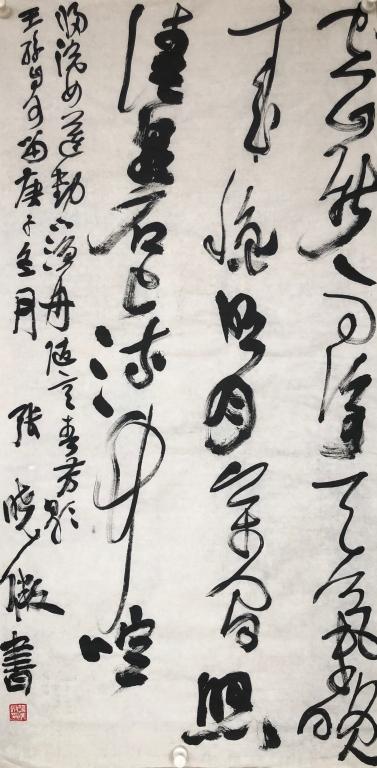 空山新雨後天氣晚
来秋明月松間照
清泉石上流竹喧
歸浣女蓮動下漁舟随意春芳歇
王孫自可留庚子冬月 張曉書